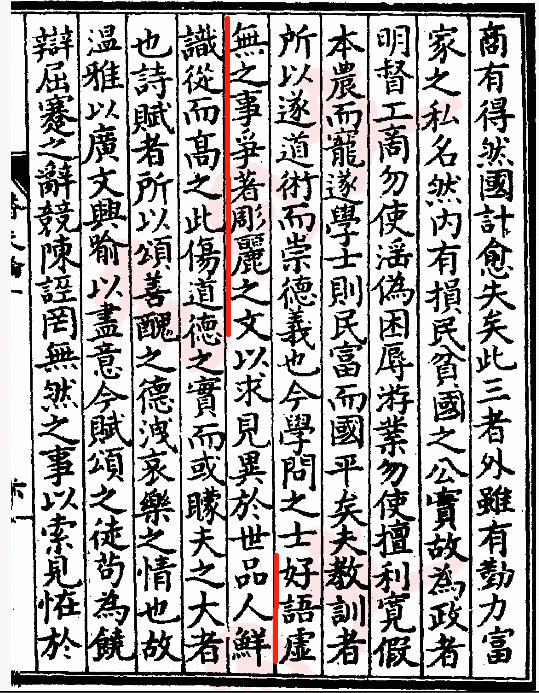 商有得然國計愈失矣此三者外雖有勤力富
家之私名然內有損民貧國之公實故為政者
明督工商勿使淫偽困辱游業勿使擅利寬假
本農而寵遂學士則民富而國平矣夫教訓者
所以遂道術而崇德義也今學問之士好語虛
無之事爭著彫麗之文以求見異於世品人鮮
識從而髙之此傷道德之實而或矇夫之大者
也詩賦者所以頌善醜之德洩哀樂之情也故
温雅以廣文興喻以盡意今賦頌之徒苟為饒
辯屈蹇之辭競陳誣罔無然之事以索見恠於